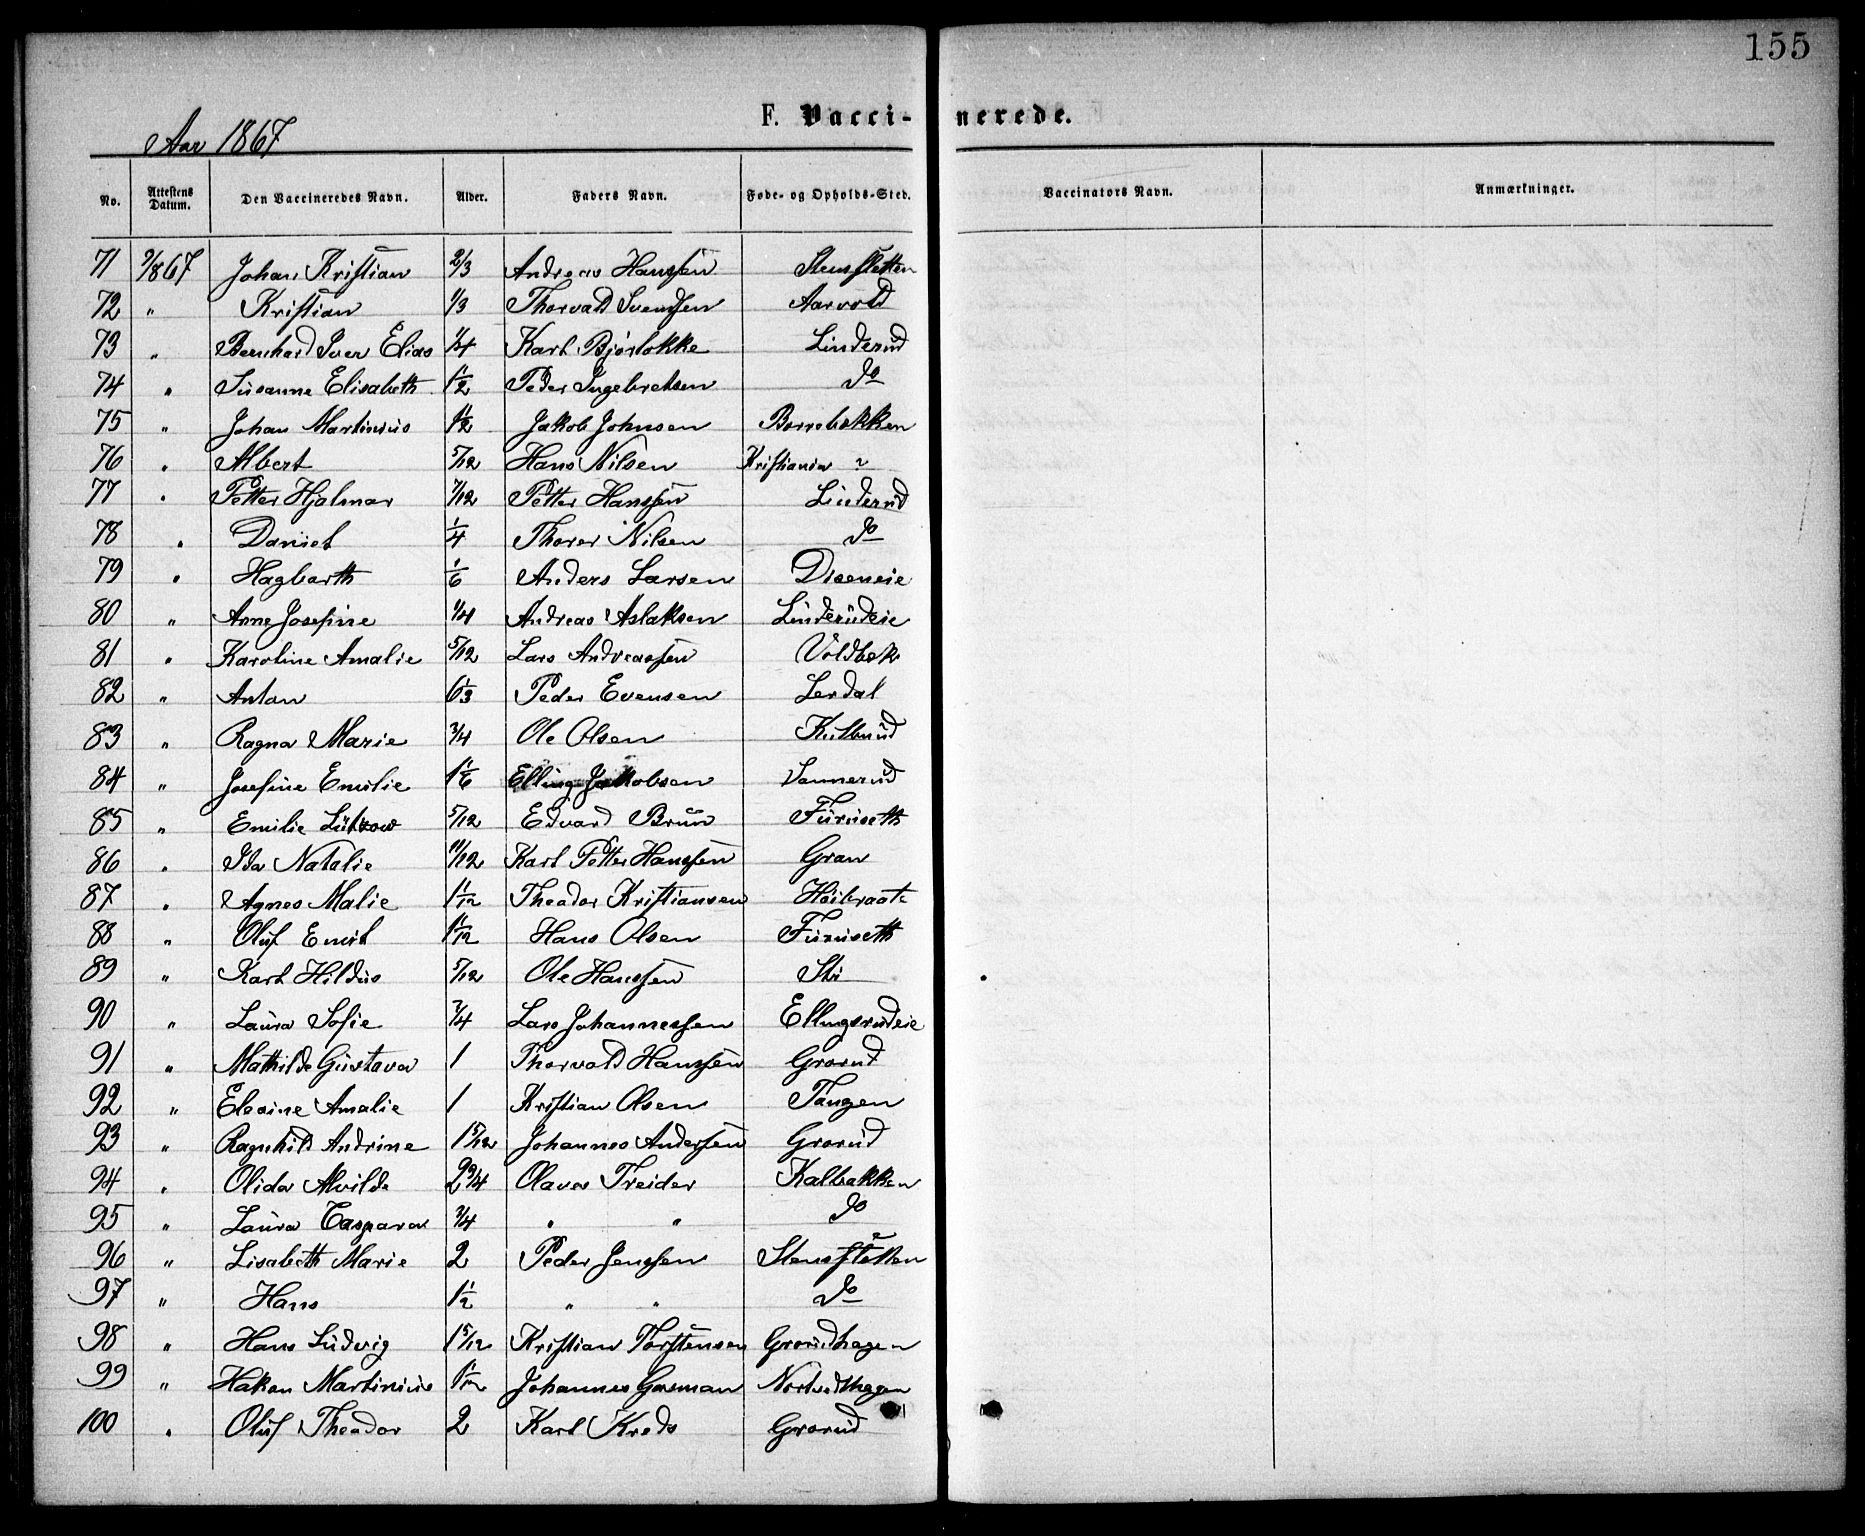 155
F. Vacci- nerede.
Aar 1867
No. Attestens Datum. Den Vaccineredes Navn. Alder. Faders Navn. Føde- og Opholds-Sted. Vaccinators Navn. Anmærkninger.
71 9/867 Johan Kristian 2/3 Andreas Hanssen Stensletten
72 " Kristian 1/3 Thorvald Svendsen Aarvold
73 " Bernhard Iver Elias 1/4 Karl Bjørløkke Linderud
74 " Susanne Elisabeth 1 1/2 Peder Ingebretsen do
75 " Johan Martinius 1 1/2 Jakob Johnsen Borrebekken
76 " Albert 5/12 Hans Nilsen Kristiania
77 " Petter Hjalmar 7/12 Petter Hanssen Linderud
78 " Daniel 1/4 Thorer Nilsen do
79 " Hagbarth 1/6 Anders Larsen Diseneie
80 " Anne Josefine 1/4 Andreas Aslaksen Linderudeie
81 " Karoline Amalie 5/12 Lars Andreassen Voldbæk
82 " Anton 6 1/3 Peder Evensen Lerdal
83 " Ragna Marie 3/4 Ole Olsen
84 " Josefine Emilie 1 1/6 Elling Jakobsen Vannerud
85 " Emilie Lützow 5/12 Edvard Brun Furuseth
86 " Ida Natalie 11/12 Karl Petter Hanssen Gran
87 " Agnes Malie 1 1/12 Theador Kristiansen Høibraate
88 " Oluf Emil 1 1/12 Hans Olsen Furuseth
89 " Karl Hildus 5/12 Ole Hanssen Sti
90 " Laura Sofie 3/4 Lars Johannessen Ellingsrudeie
91 " Mathilde Gustava 1 Thorvald Hanssen Grorud
92 " Eleaine Amalie 1 Kristian Olsen Tangen
93 " Ragnhild Andrine 1 5/12 Johannes Andersen Grorud
94 " Olida Alvilde 2 3/4 Olaves Treider Kalbakken
95 " Laura Caspara 3/4 " " do
96 " Lisabeth Marie 2 Peder Jenssen Stensletten
97 " Hans 1 1/2 " " do
98 " Hans Ludvig 1 5/12 Kristian Torstensen Grorudhagen
99 " Hakon Martinius 1 1/12 Johannes Gasman Nordtvedthagen
100 " Oluf Theador 2 Karl Kreds Grorud